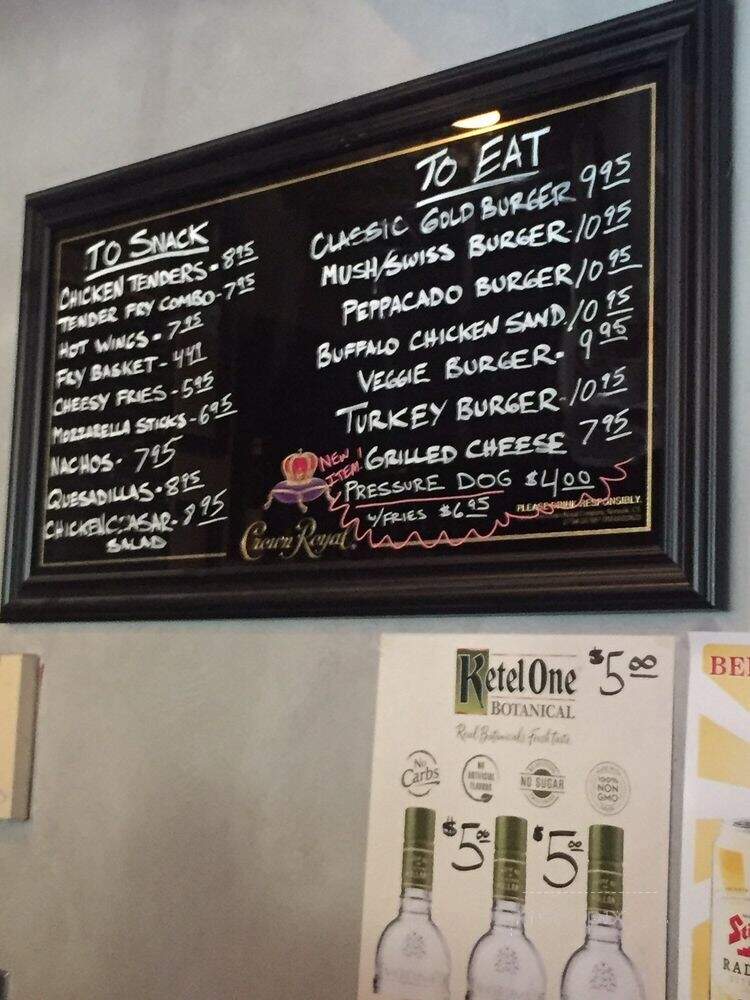 TO SNACK
CHICKEN TENDERS - 8 95
TENDER FRY COMBO - 7 95
HOT WINGS - 7 95
FRY BASKET -
CHEESY FRIES - 5 95
MOZZARELLA STICKS - 6 95
NACHOS - 7 95
QUESADILLAS - 8 95
CHICKEN CEASAR - 8 95
SALAD
TO EAT
CLASSIC GOLD BURGER 9 95
MUSH/SWISS BURGER - 10 95
PEPPACADO BURGER 10 95
BUFFALO CHICKEN SAND. 10 95
VEGGIE BURGER - 9 95
TURKEY BURGER - 10 95
GRILLED CHEESE 7 95
NEW!
ITEM
PRESSURE DOG $4.00
W/FRIES $6.95
Crown Royal
PLEASE DRINK RESPONSIBLY.
Ketel One $5.00
BOTANICAL
Real Botanicals. Fresh taste
No Carbs
NO ARTIFICIAL FLAVORS
NO SUGAR
100% NON GMO
$5.00 $5.00
BE
RAD